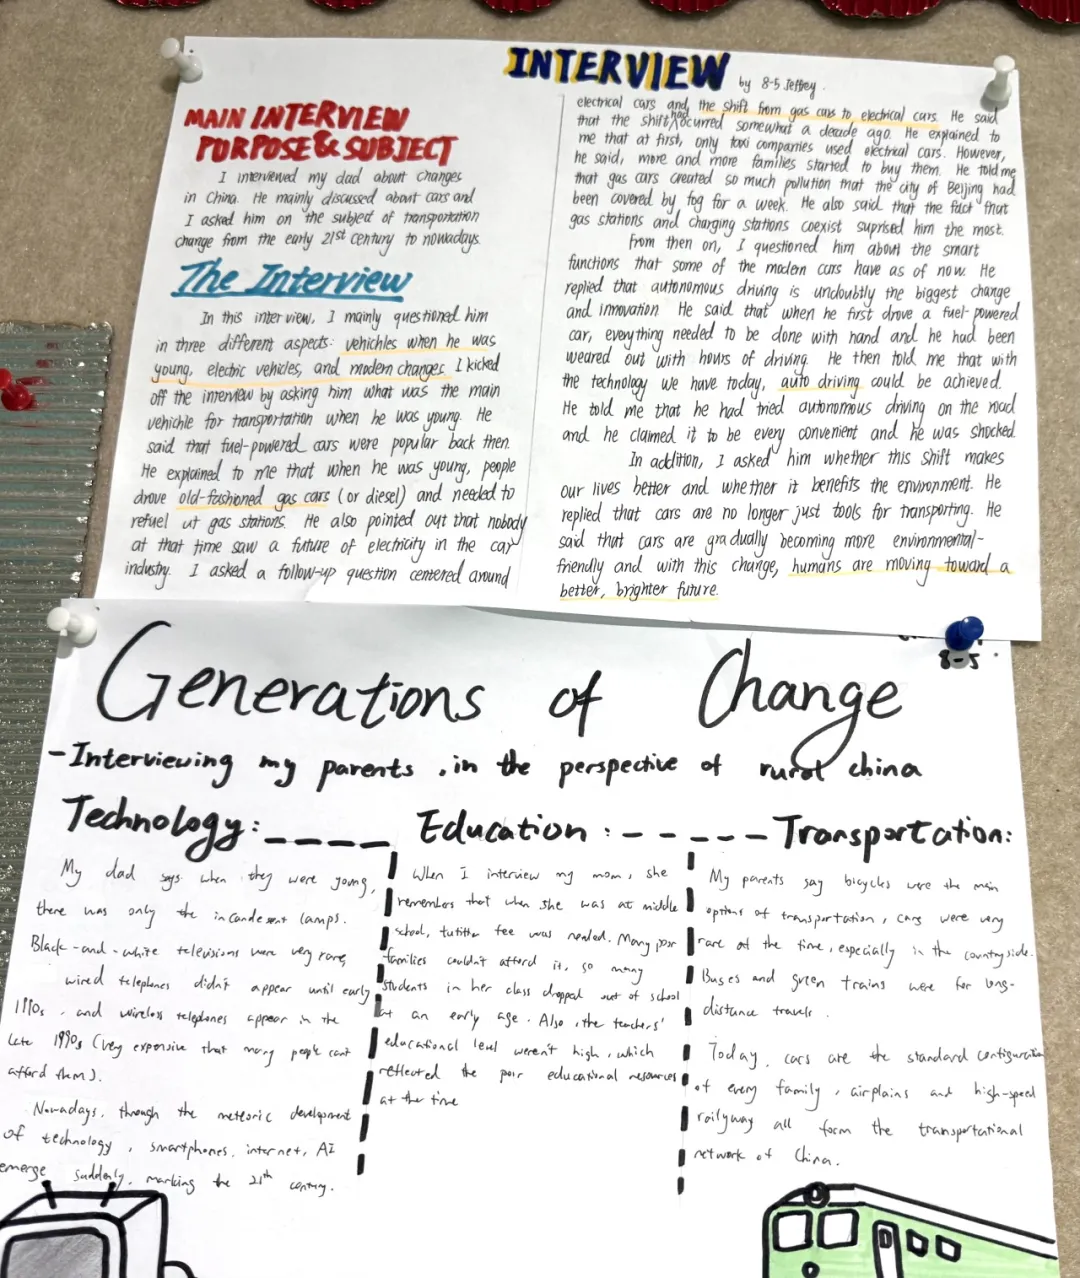 INTERVIEW
by 8-5 Jeffrey.
MAIN INTERVIEW
PURPOSE & SUBJECT
I interviewed my dad about changes
in China. He mainly discussed about cars and
I asked him on the subject of transportation
change from the early 21st century to nowadays.
The Interview
In this interview, I mainly questioned him
in three different aspects: vehichles when he was
young, electric vehicles, and modern changes. I kicked
off the interview by asking him what was the main
vehichle for transportation when he was young. He
said that fuel-powered cars were popular back then.
He explained to me that when he was young, people
drove old-fashioned gas cars (or diesel) and needed to
refuel at gas stations. He also pointed out that nobody
at that time saw a future of electricity in the car
industry. I asked a follow-up question centered around
electrical cars and, the shift from gas cars to electrical cars. He said
that the shift had ocurred somewhat a decade ago. He explained to
me that at first, only taxi companies used electrical cars. However,
he said, more and more families started to buy them. He told me
that gas cars created so much pollution that the city of Beijing had
been covered by fog for a week. He also said that the fact that
gas stations and charging stations coexist suprised him the most.
From then on, I questioned him about the smart
functions that some of the modern cars have as of now. He
replied that autonomous driving is undoubtly the biggest change
and innovation. He said that when he first drove a fuel-powered
car, everything needed to be done with hand and he had been
weared out with hours of driving. He then told me that with
the technology we have today, auto driving could be achieved.
He told me that he had tried autonomous driving on the road
and he claimed it to be every convenient and he was shocked
In addition, I asked him whether this shift makes
our lives better and whether it benefits the environment. He
replied that cars are no longer just tools for transporting. He
said that cars are gradually becoming more environmental-
friendly and with this change, humans are moving toward a
better, brighter future.
8-5
Generations of Change
-Interviewing my parents, in the perspective of rural china
Technology:
My dad says when they were young,
there was only the incandesent lamps.
Black-and-white televisions were very rare,
wired telephones didn't appear until early
1990s, and wireless telephones appear in the
late 1990s (very expensive that many people can't
afford them).
Nowadays, through the meteoric development
of technology, smartphones, internet, AI
emerge suddenly, marking the 21th century.
Education:
When I interview my mom, she
remembers that when she was at middle
school, tuition fee was needed. Many poor
families couldn't afford it, so many
students in her class dropped out of school
at an early age. Also, the teachers'
educational level weren't high, which
reflected the poor educational resources
at the time
Transportation:
My parents say bicycles were the main
options of transportation, cars were very
rare at the time, especially in the countryside.
Buses and green trains were for long-
distance travels.
Today, cars are the standard configuration
of every family, airplains and high-speed
railyway all form the transportational
network of China.